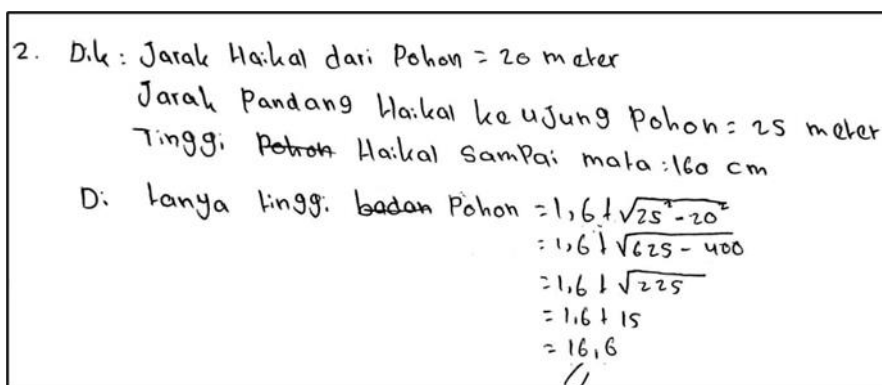 2. Dik : Jarak Haikal dari Pohon = 20 meter
Jarak Pandang Haikal ke ujung Pohon = 25 meter
Tinggi Pohon Haikal sampai mata : 160 cm
Di tanya tinggi badan Pohon = 1,6 + √25² - 20²
= 1,6 + √625 - 400
= 1,6 + √225
= 1,6 + 15
= 16,6